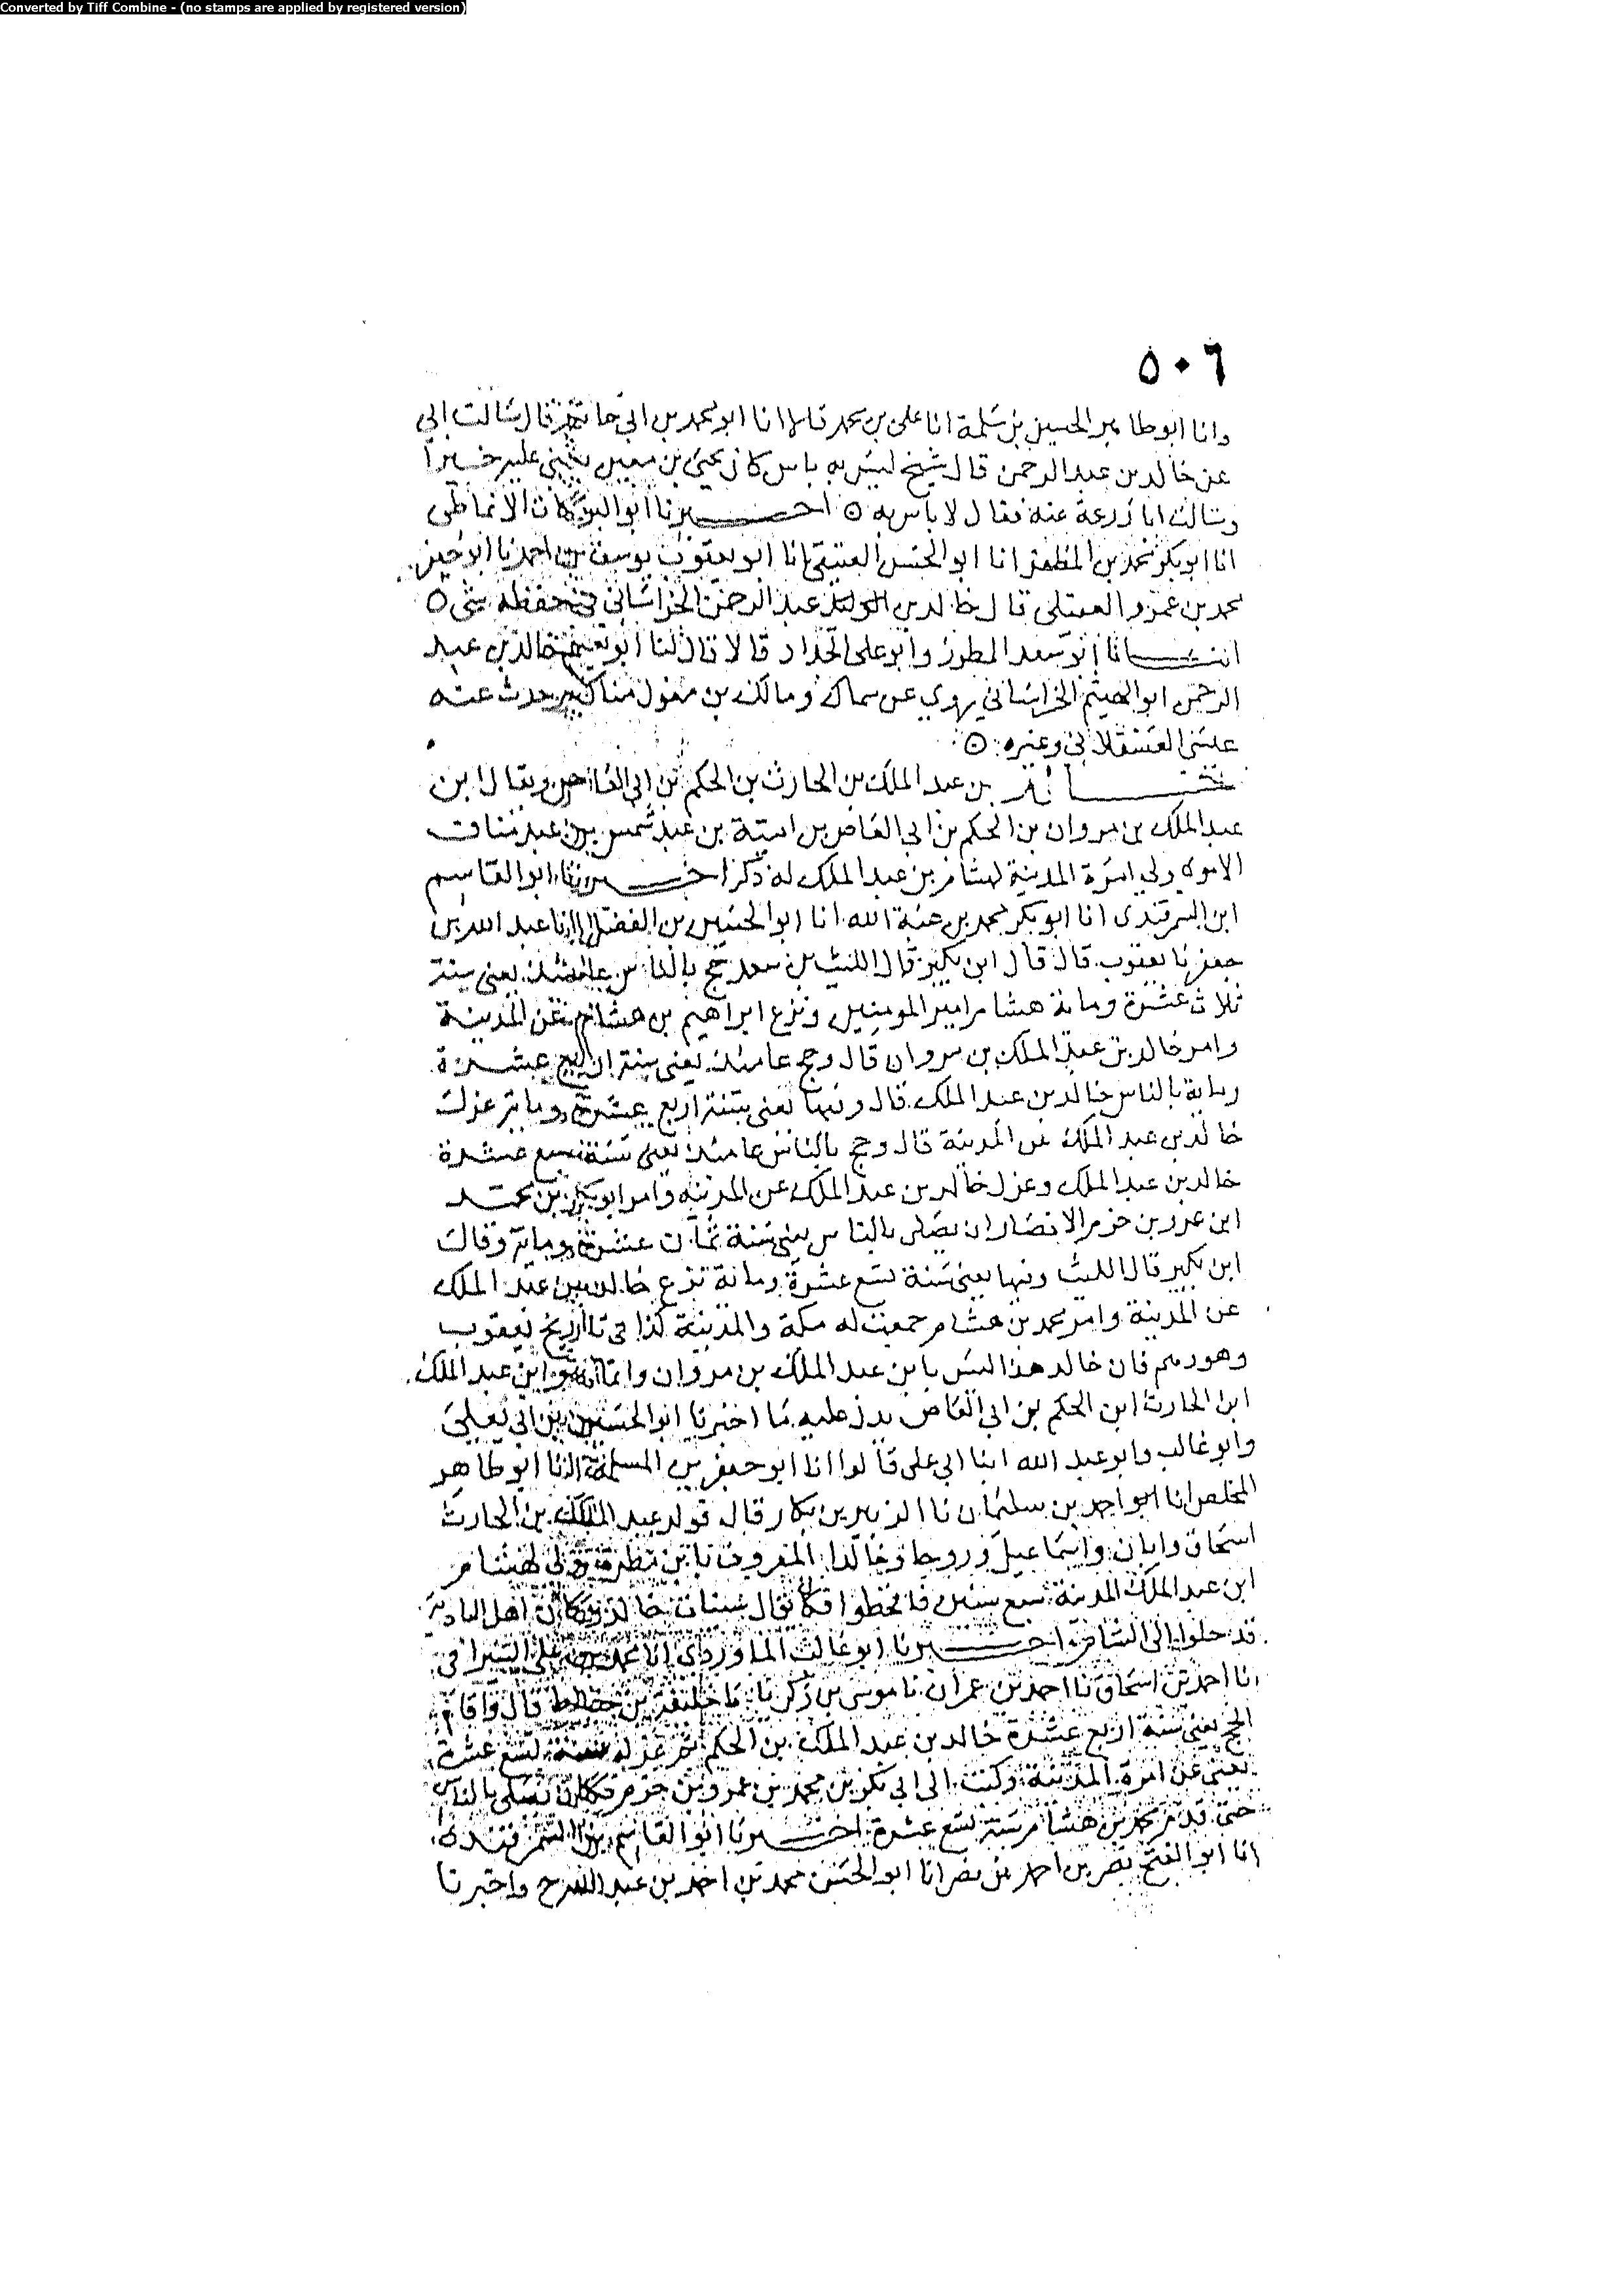 Converted by Tiff Combine - (no stamps are applied by registered version)
٥٠٦
وانا ابو طاهر الحسين بن سلمة انا على بن محمد قالا انا ابو محمد بن ابي حاتم قال سالت ابي
عن خالد بن عبد الرحمن قال شيخ ليس به باس كان يحيى بن معين يثنى عليه خيرا
وسالت ابا زرعة عنه فقال لا باس به ٥ اخبرنا ابو البركات الانماطى
انا ابو بكر محمد بن المظفر انا ابو الحسن العتيقى انا ابو يعقوب يوسف بن احمد نا ابو جعفر
محمد بن عمرو العقيلى قال خالد بن عبد الرحمن الخراسانى في حفظه شى ٥
انبانا ابو سعد المطرز وابو على الحداد قالا قال لنا ابو نعيم خالد بن عبد
الرحمن ابو الهيثم الخراسانى يروي عن سماك ومالك بن مغول مناكير حدث عنه
عيسى العسقلانى وغيره ٥
خالد بن عبد الملك بن الحارث بن الحكم بن ابي العاص ويقال ابن
عبد الملك بن مروان بن الحكم بن ابي العاص بن امية بن عبد شمس بن عبد مناف
الاموي ولي امرة المدينة لهشام بن عبد الملك له ذكر اخبرنا ابو القاسم
ابن السمرقندى انا ابو بكر محمد بن هبة الله انا ابو الحسين بن الفضل انا عبد الله بن
جعفر نا يعقوب قال قال ابن بكير قال الليث بن سعد حج بالناس عامئذ يعنى سنة
ثلاث عشرة ومائة هشام امير المومنين ونزع ابراهيم بن هشام عن المدينة
وامر خالد بن عبد الملك بن مروان قال وحج عامئذ يعنى سنة اربع عشرة
ومائة بالناس خالد بن عبد الملك قال وفيها يعنى سنة اربع عشرة ومائة عزل
خالد بن عبد الملك عن المدينة قال وحج بالناس عامئذ يعنى سنة سبع عشرة
خالد بن عبد الملك وعزل خالد بن عبد الملك عن المدينة وامر ابو بكر بن محمد
ابن عمرو بن حزم الانصارى ان يصلى بالناس يعنى سنة ثمان عشرة ومائة وقال
ابن بكير قال الليث وفيها يعنى سنة تسع عشرة ومائة نزع خالد بن عبد الملك
عن المدينة وامر محمد بن هشام جمعت له مكة والمدينة كذا في تاريخ يعقوب
وهو وهم فان خالد هذا ليس بابن عبد الملك بن مروان وانما هو ابن عبد الملك
ابن الحارث ابن الحكم بن ابي العاص يدل عليه ما اخبرنا ابو الحسين بن ابي يعلى
وابو غالب وابو عبد الله ابنا ابي على قالوا انا ابو جعفر بن المسلمة انا ابو طاهر
المخلص انا احمد بن سليمان نا الزبير بن بكار قال فولد عبد الملك بن الحارث
اسحاق وابان واسماعيل وروحا وخالدا المعروف بابن مطرة ولى لهشام
ابن عبد الملك المدينة سبع سنين فاقحطوا فكان يقال سنيات خالد وكان اهل البادية
قد جلوا الى الشام اخبرنا ابو غالب الماوردى انا محمد بن على السيرافى
انا احمد بن اسحاق نا احمد بن عمران نا موسى بن زكريا نا خليفة بن خياط قال واقام
الحج يعنى سنة اربع عشرة خالد بن عبد الملك بن الحكم ثم عزله سنة تسع عشرة
يعنى عن امرة المدينة وكتب الى ابي بكر بن محمد بن عمرو بن حزم فكان يصلى بالناس
حتى قدم محمد بن هشام سنة تسع عشرة اخبرنا ابو القاسم بن السمرقندى
انا ابو الفتح نصر بن احمد بن نصر انا ابو الحسن محمد بن احمد بن عبد الله ح واخبرنا